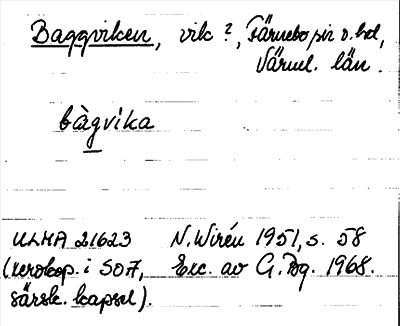 Baggviken, vik ?, Färnebo sn o. hd,
Värml. län.
bàgvika
ULMA 21623 N. Wirén 1951, s. 58
(xerokop. i SOA, Exc. av G. Bg. 1968.
särsk. kapsel).